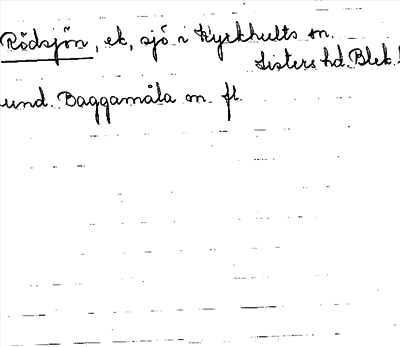 Rödsjön, ek, sjö i Kyrkhults sn.
Listers hd. Blek.
und. Baggamåla m. fl.